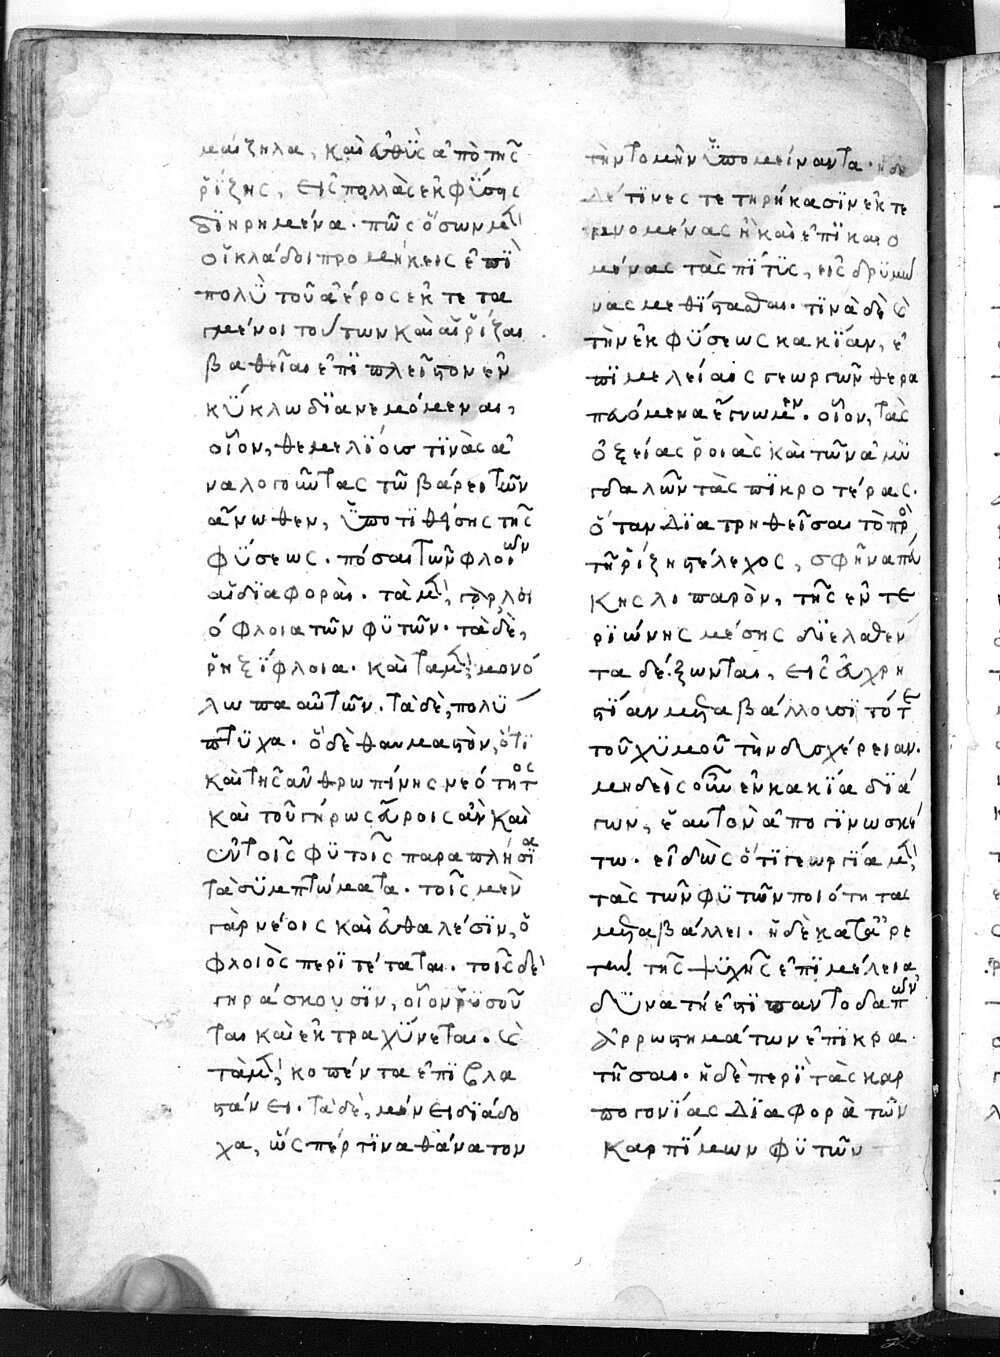 μαίζηλα, καὶ εὐθὺς ἀπὸ τῆς
ῥίζης, εἰς πολλὰς ἐκφύσεις
διηρημένα. πῶς ὅσων μὲν
οἱ κλάδοι προμήκεις ἐπὶ
πολὺ τοῦ ἀέρος ἐκτετα
μένοι τούτων καὶ αἱ ῥίζαι
βαθεῖαι ἐπὶ πλεῖστον ἐν
κύκλω διανεμόμεναι,
οἷον, θεμελίους τινὰς ἀ
ναλογοῦντας τῶ βάρει τῶν
ἄνωθεν, ὑποτιθείσης τῆς
φύσεως. πόσαι τῶν φλοιῶν
αἱ διαφοραί. τὰ μὲν, γὰρ λει
όφλοια τῶν φυτῶν. τὰ δὲ,
ῥηξίφλοια. καὶ τὰ μὲν, μονό
λωπα αὐτῶν. τὰ δὲ, πολύ
πτυχα. ὃ δὲ θαυμαστὸν, ὅτι
καὶ τῆς ἀνθρωπίνης νεότητος
καὶ τοῦ γήρως εὕροις ἂν καὶ
ἐν τοῖς φυτοῖς παραπλήσια
τὰ συμπτώματα. τοῖς μὲν
γὰρ νέοις καὶ εὐθαλέσιν, ὁ
φλοιὸς περιτέταται. τοῖς δὲ
γηράσκουσιν, οἷον ῥυσοῦ
ται καὶ ἐκτραχύνεται. καὶ
τὰ μὲν, κοπέντα ἐπιβλα
στάνει. τὰ δὲ, μένει ἀδιάδο
χα, ὥσπερ τινὰ θάνατον
τὴν τομὴν ὑπομείναντα. ἤδη
δέ τινες τετηρήκασιν ἐκτε
μνομένας ἢ καὶ ἐπικαιο
μένας τὰς πίτυς, εἰς δρυμῶ
νας μεθίστασθαι. τινὰ δὲ καὶ
τὴν ἐκ φύσεως κακίαν, ἐ
πιμελείαις γεωργῶν θερα
πευόμενα ἔγνωμεν. οἷον, τὰς
ὀξείας ῥοιὰς καὶ τῶν ἀμυ
γδαλῶν τὰς πικροτέρας.
ὅταν διατρηθεῖσαι τὸ πρὸς
τῆ ῥίζη στέλεχος, σφῆνα πεύ
κης λιπαρὸν, τῆς ἐντε
ριώνης μέσης διελαθέν
τα δέξωνται, εἰς εὐχρη
στίαν μεταβάλλουσι τότε
τοῦ χυμοῦ τὴν δυσχέρειαν.
μηδεὶς οὖν ἐν κακία διά
γων, ἑαυτὸν ἀπογινωσκέ
τω. εἰδὼς ὅτι γεωργία μὲν
τὰς τῶν φυτῶν ποιότητας
μεταβάλλει. ἡ δὲ κατ' ἀρε
τὴν τῆς ψυχῆς ἐπιμέλεια,
δυνατή ἐστι παντοδαπῶν
ἀρρωστημάτων ἐπικρα
τῆσαι. ἡ δὲ περὶ τὰς καρ
πογονίας διαφορὰ τῶν
καρπίμων φυτῶν